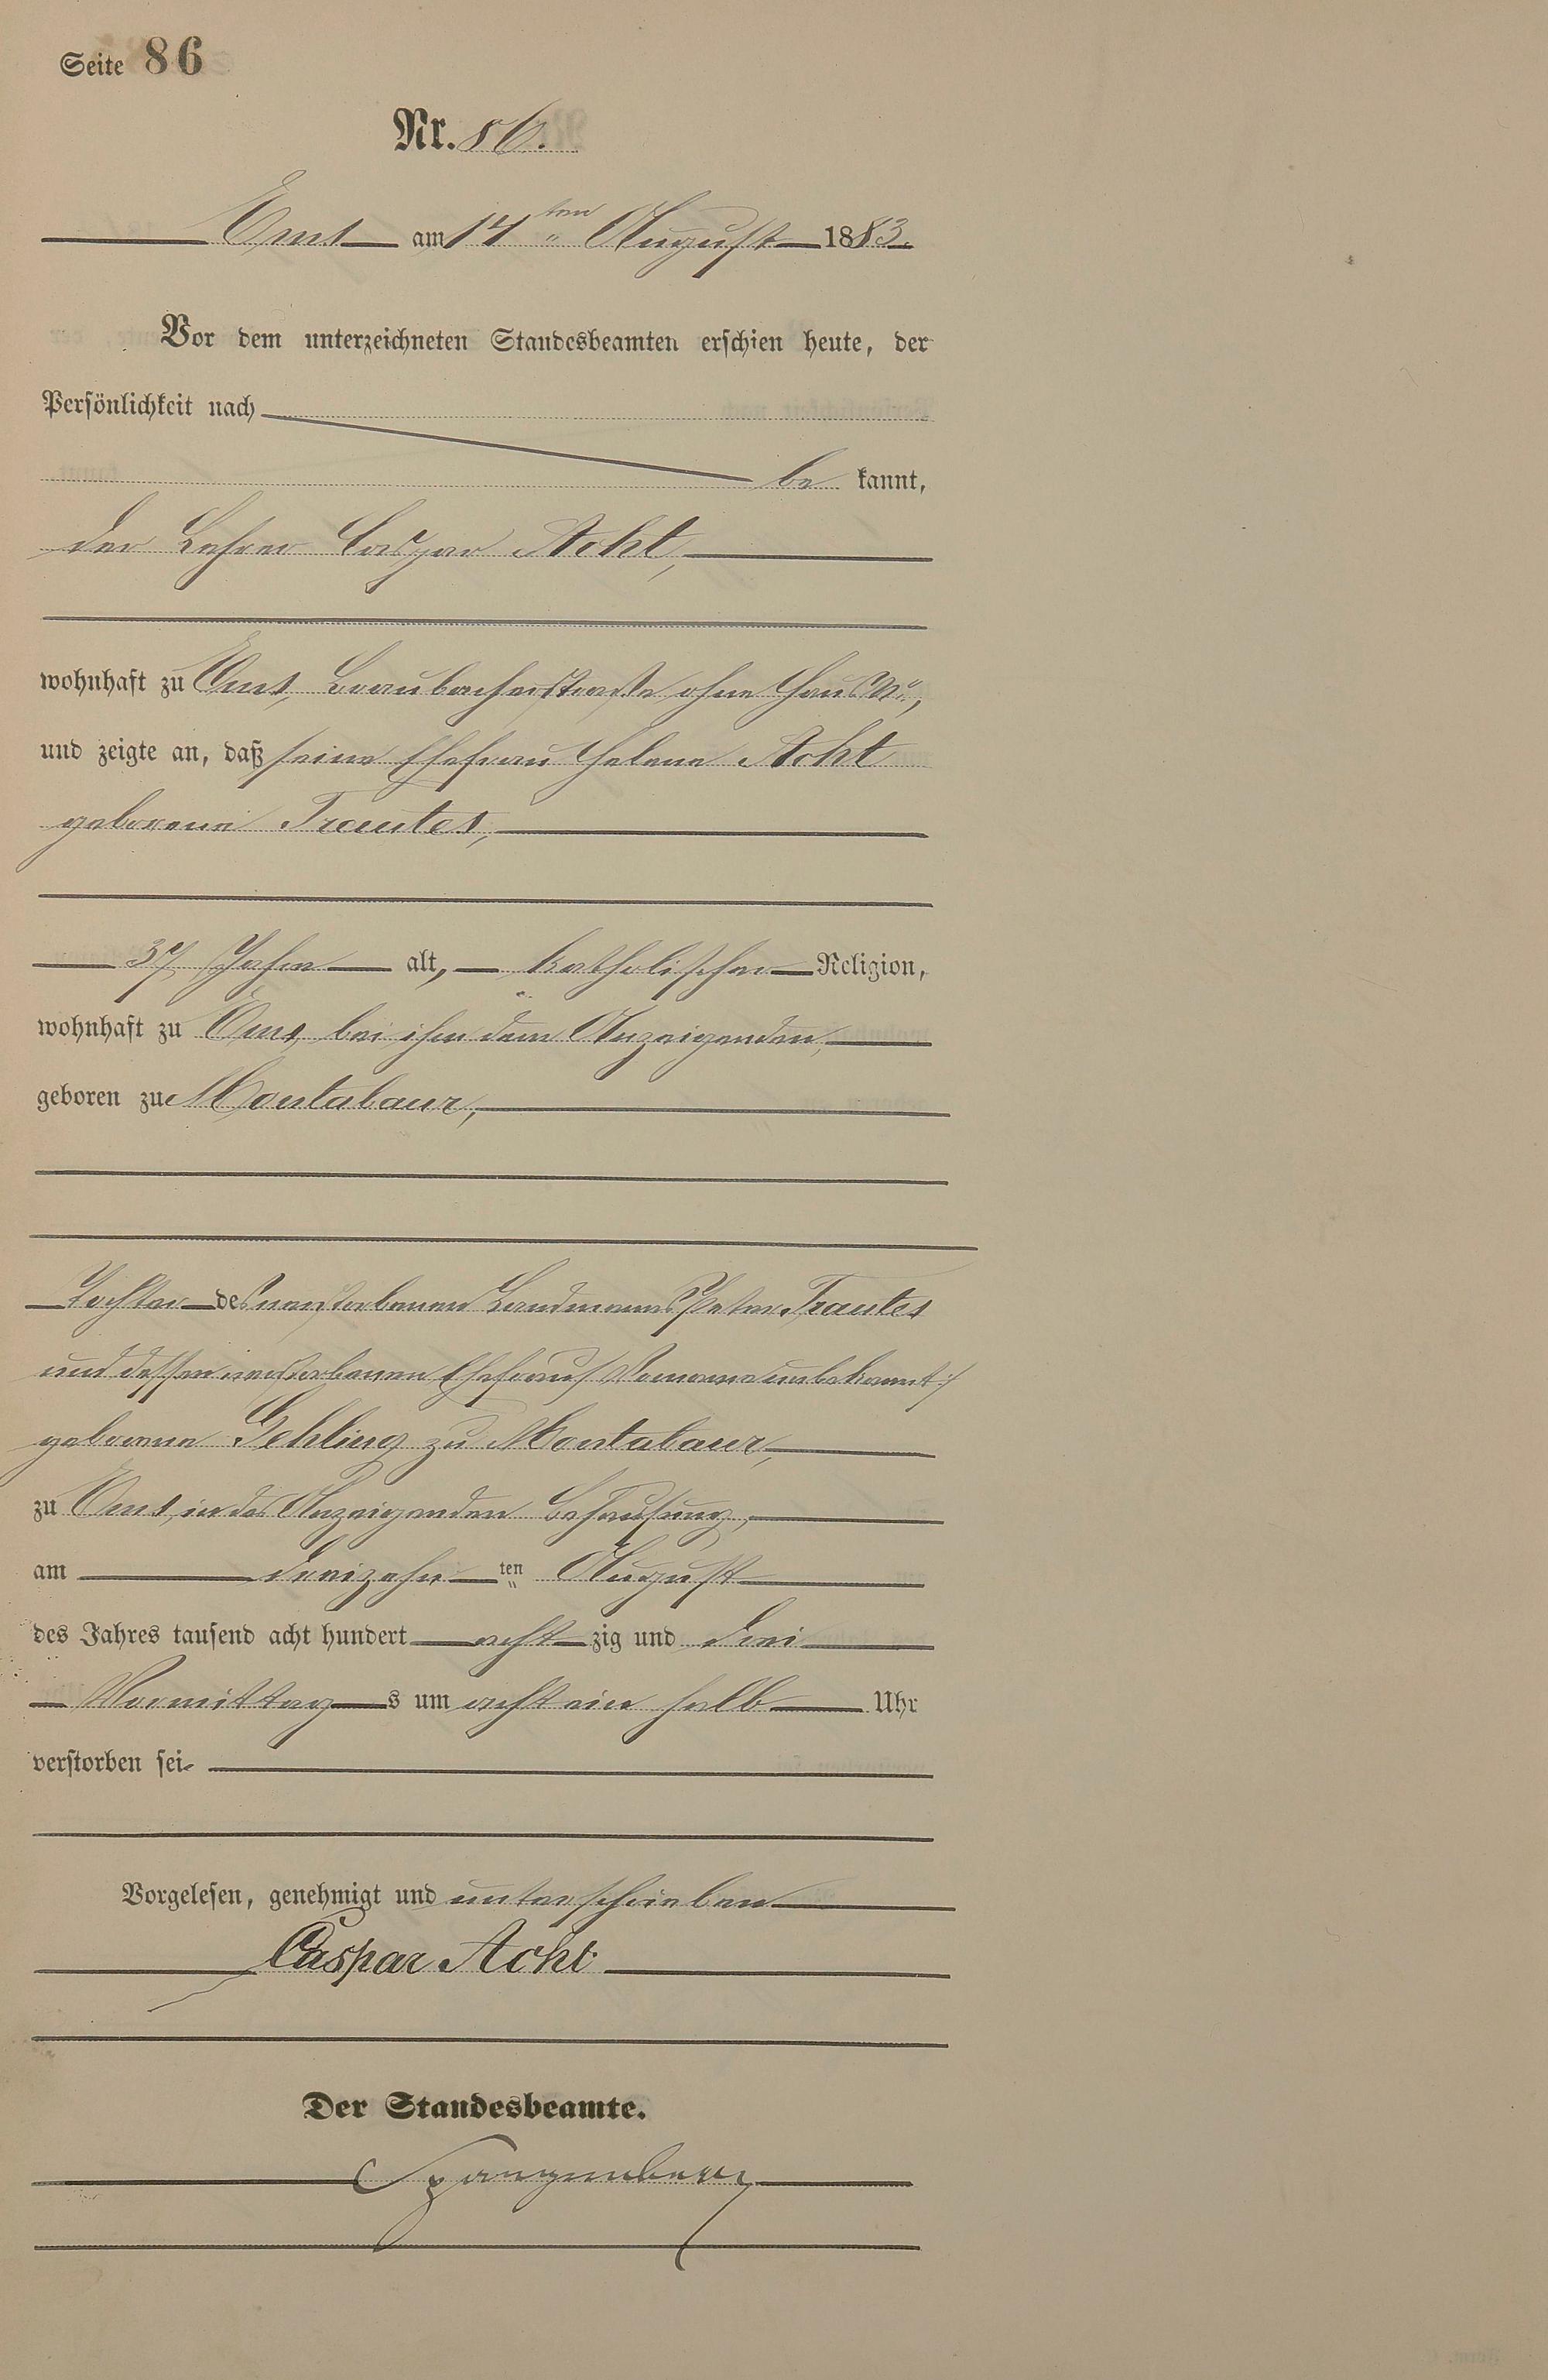 Seite 86
Nr. 86.
Ems am 14ten August 1883.
Vor dem unterzeichneten Standesbeamten erschien heute, der
Persönlichkeit nach
be kannt,
der Lehrer Caspar Acht,
wohnhaft zu Ems, Braubacherstraße ohne Haus No,
und zeigte an, daß seine Ehefrau Helene Acht
geborene Trautes,
37 Jahre alt, katholischer Religion,
wohnhaft zu Ems, bei ihm dem Anzeigenden,
geboren zu Montabaur,
Tochter des verstorbenen Landmanns Peter Trautes
und dessen verstorbenen Ehefrau / Vorname unbekannt :/
geborene Gehling zu Montabaur,
zu Ems, in des Anzeigenden Behausung,
am dreizehn ten August
des Jahres tausend acht hundert acht zig und drei
Vormittag s um acht ein halb Uhr
verstorben sei.
Vorgelesen, genehmigt und unterschrieben
Caspar Acht
Der Standesbeamte.
Spangenberg